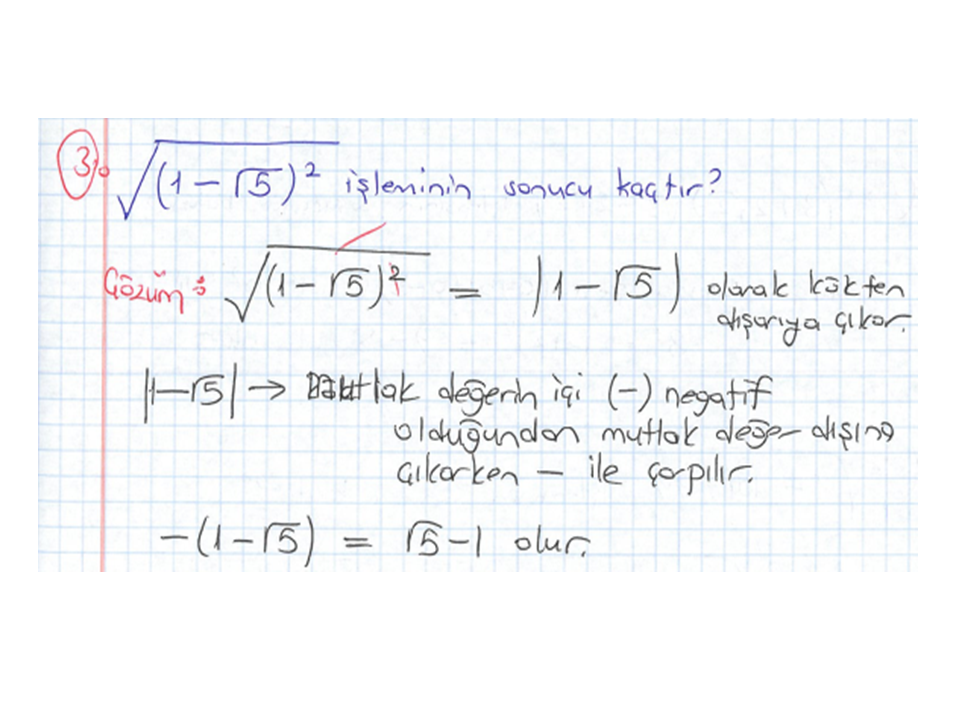 3) √(1-√5)² işleminin sonucu kaçtır?
Çözüm: √(1-√5)² = |1-√5| olarak kökten
dışarıya çıkar.
|1-√5| → Mutlak değerin içi (-) negatif
olduğundan mutlak değer dışına
çıkarken - ile çarpılır.
-(1-√5) = √5-1 olur.